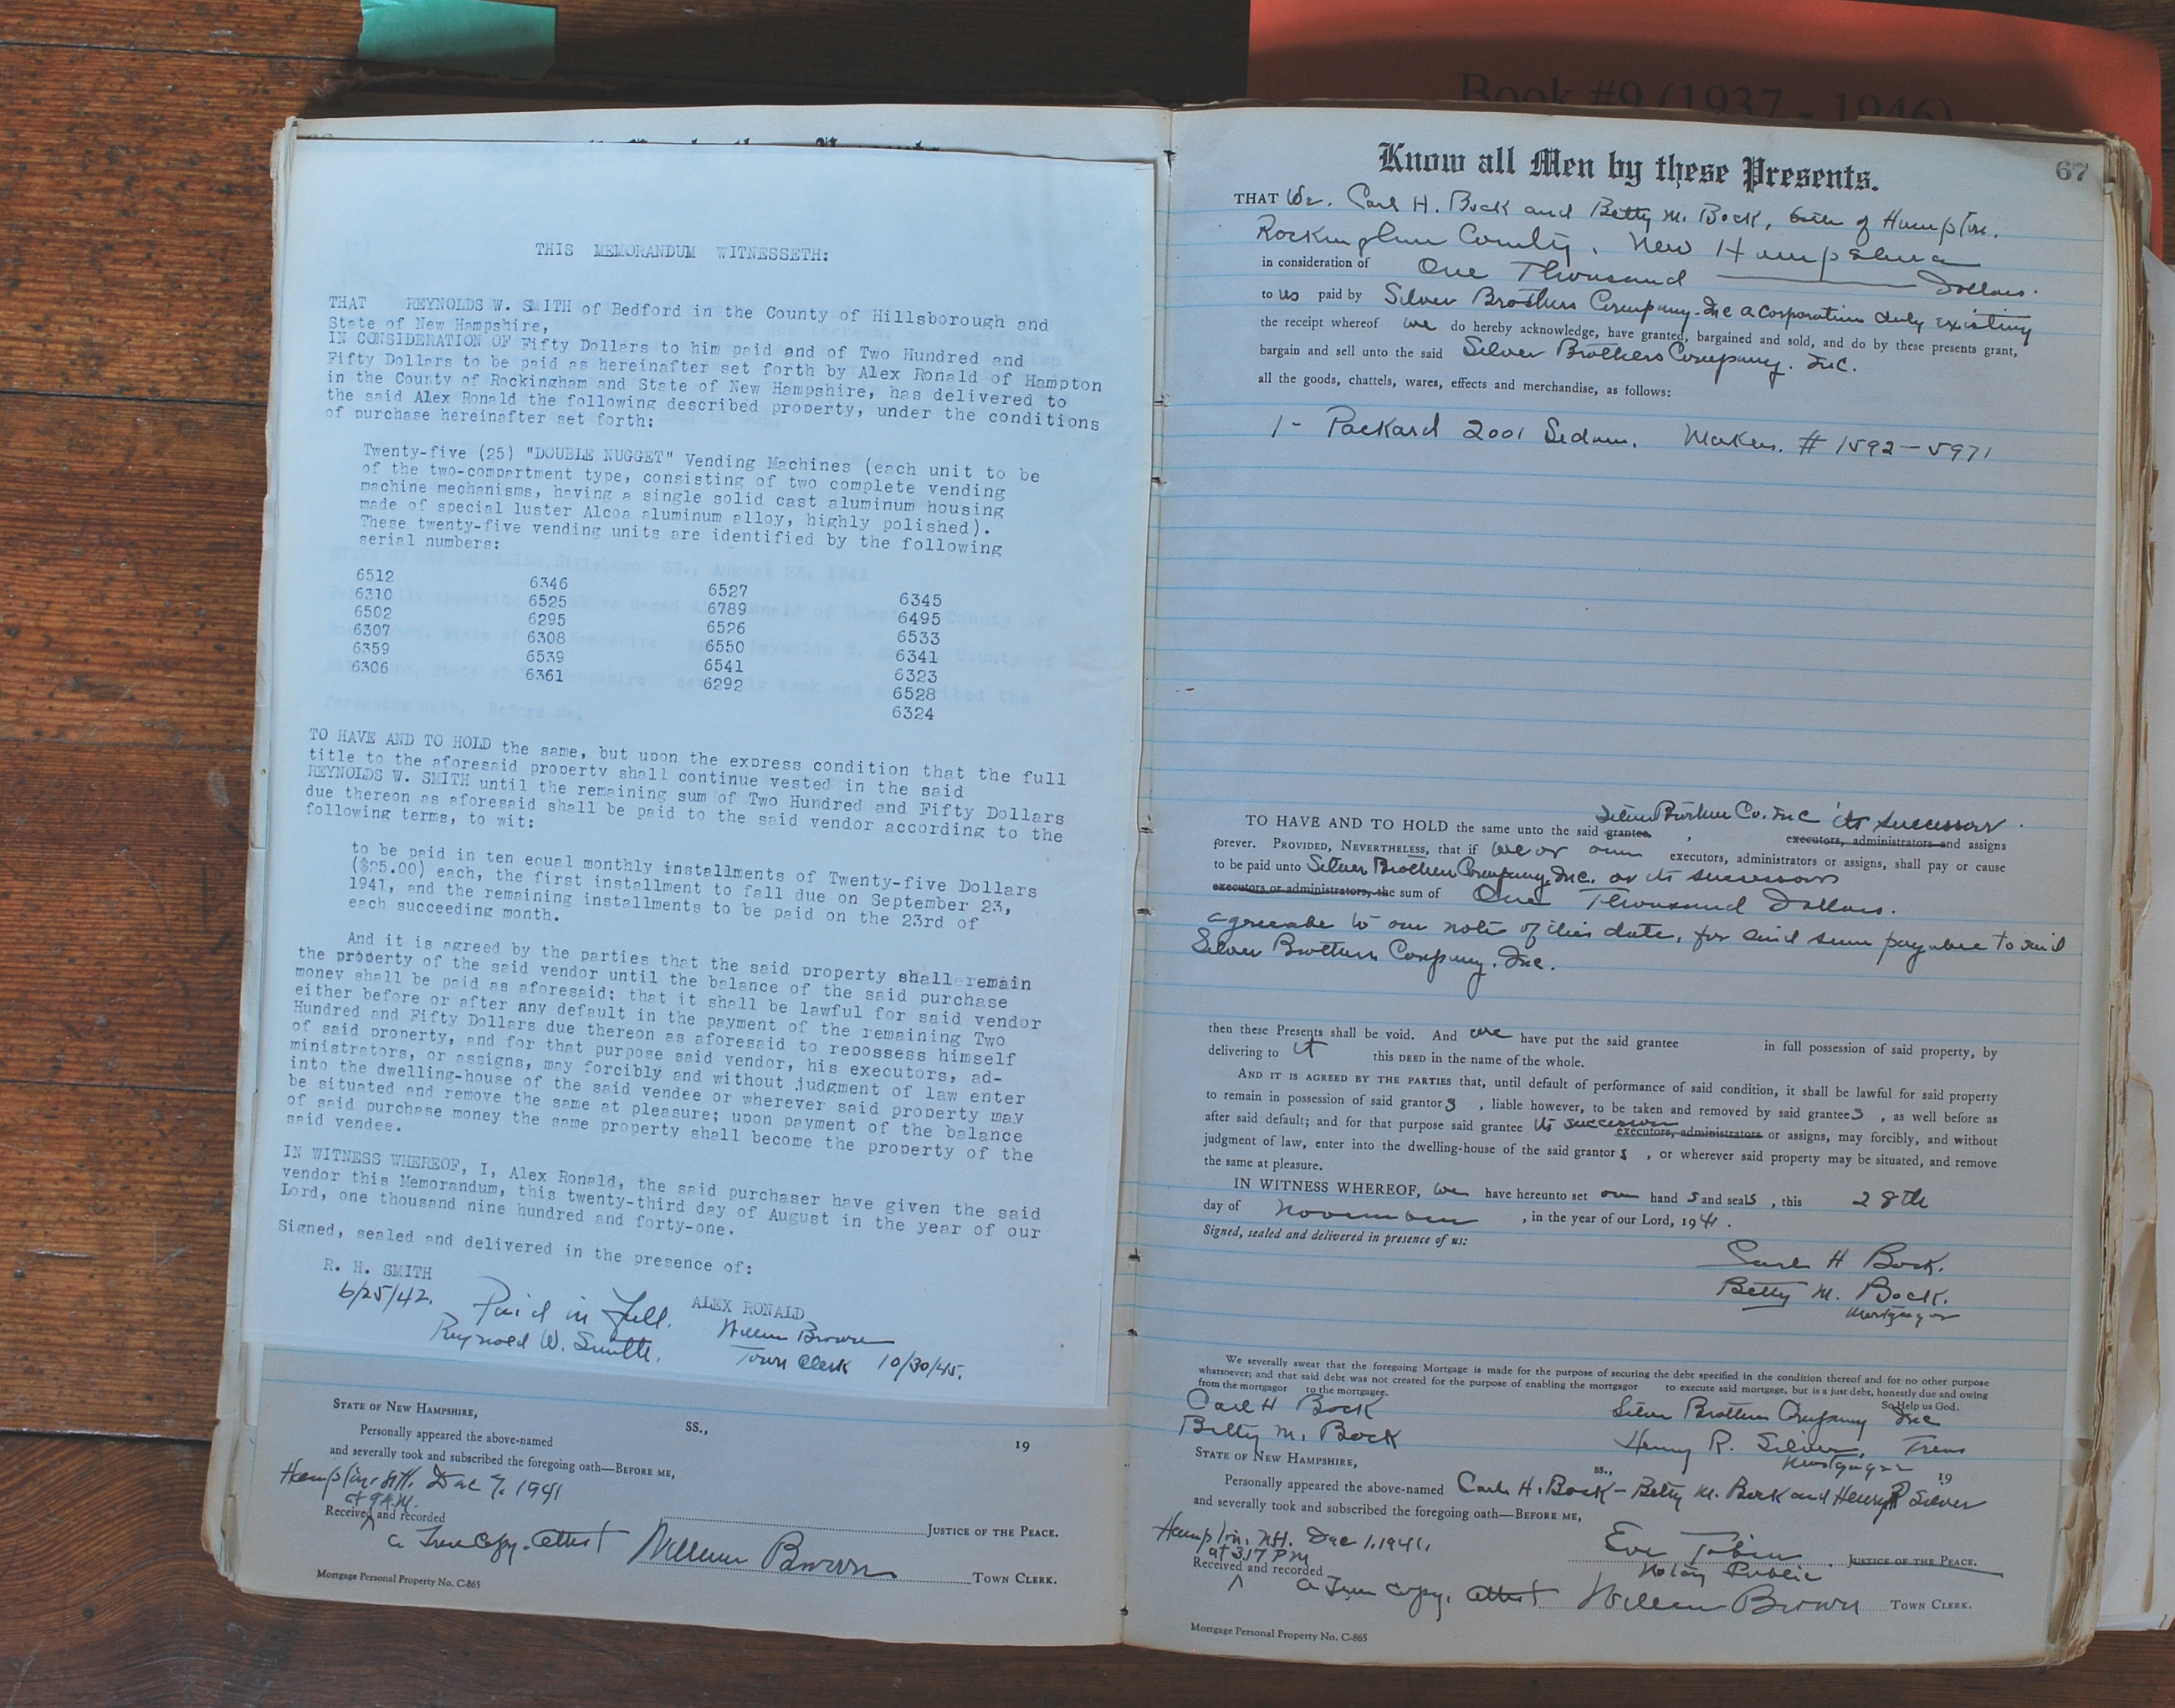 Book #9 (1937 - 1946)
THIS MEMORANDUM WITNESSETH:
THAT REYNOLDS W. SMITH of Bedford in the County of Hillsborough and
State of New Hampshire,
IN CONSIDERATION OF Fifty Dollars to him paid and of Two Hundred and
Fifty Dollars to be paid as hereinafter set forth by Alex Ronald of Hampton
in the County of Rockingham and State of New Hampshire, has delivered to
the said Alex Ronald the following described property, under the conditions
of purchase hereinafter set forth:
Twenty-five (25) "DOUBLE NUGGET" Vending Machines (each unit to be
of the two-compartment type, consisting of two complete vending
machine mechanisms, having a single solid cast aluminum housing
made of special luster Alcoa aluminum alloy, highly polished).
These twenty-five vending units are identified by the following
serial numbers:
6512 6346 6527 6345
6310 6525 6789 6495
6502 6295 6526 6533
6307 6308 6550 6341
6359 6539 6541 6323
6306 6361 6292 6528
6324
TO HAVE AND TO HOLD the same, but upon the express condition that the full
title to the aforesaid property shall continue vested in the said
REYNOLDS W. SMITH until the remaining sum of Two Hundred and Fifty Dollars
due thereon as aforesaid shall be paid to the said vendor according to the
following terms, to wit:
to be paid in ten equal monthly installments of Twenty-five Dollars
($25.00) each, the first installment to fall due on September 23,
1941, and the remaining installments to be paid on the 23rd of
each succeeding month.
And it is agreed by the parties that the said property shall remain
the property of the said vendor until the balance of the said purchase
money shall be paid as aforesaid: that it shall be lawful for said vendor
either before or after any default in the payment of the remaining Two
Hundred and Fifty Dollars due thereon as aforesaid to repossess himself
of said property, and for that purpose said vendor, his executors, ad-
ministrators, or assigns, may forcibly and without judgment of law enter
into the dwelling-house of the said vendee or wherever said property may
be situated and remove the same at pleasure; upon payment of the balance
of said purchase money the same property shall become the property of the
said vendee.
IN WITNESS WHEREOF, I, Alex Ronald, the said purchaser have given the said
vendor this Memorandum, this twenty-third day of August in the year of our
Lord, one thousand nine hundred and forty-one.
Signed, sealed and delivered in the presence of:
R. H. SMITH
ALEX RONALD
6/25/42. Paid in full.
Reynold W. Smith.
William Brown
Town Clerk 10/30/45.
STATE OF NEW HAMPSHIRE, SS., 19
Personally appeared the above-named
and severally took and subscribed the foregoing oath—BEFORE ME,
Hampton, N.H. Dec 9, 1941
at 9 A.M.
JUSTICE OF THE PEACE.
Received and recorded
a True Copy. attest William Brown TOWN CLERK.
Mortgage Personal Property No. C-865
67
Know all Men by these Presents.
THAT We, Carl H. Bock and Betty M. Bock, both of Hampton,
Rockingham County, New Hampshire
in consideration of One Thousand Dollars.
to us paid by Silver Brothers Company, Inc a corporation duly existing
the receipt whereof we do hereby acknowledge, have granted, bargained and sold, and do by these presents grant,
bargain and sell unto the said Silver Brothers Company, Inc.
all the goods, chattels, wares, effects and merchandise, as follows:
1 - Packard 2001 Sedan. Makers. # 1592-5971
Silver Brothers Co. Inc its successors
TO HAVE AND TO HOLD the same unto the said grantee, executors, administrators and assigns
forever. PROVIDED, NEVERTHELESS, that if we or our executors, administrators or assigns, shall pay or cause
to be paid unto Silver Brothers Company, Inc. or its successors
executors or administrators, the sum of One Thousand Dollars.
agreeable to our note of this date, for said sum payable to said
Silver Brothers Company, Inc.
then these Presents shall be void. And we have put the said grantee in full possession of said property, by
delivering to it this DEED in the name of the whole.
AND IT IS AGREED BY THE PARTIES that, until default of performance of said condition, it shall be lawful for said property
to remain in possession of said grantor s , liable however, to be taken and removed by said grantee s , as well before as
after said default; and for that purpose said grantee its successors executors, administrators or assigns, may forcibly, and without
judgment of law, enter into the dwelling-house of the said grantor s , or wherever said property may be situated, and remove
the same at pleasure.
IN WITNESS WHEREOF, we have hereunto set our hand s and seals , this 28th
day of November , in the year of our Lord, 1941.
Signed, sealed and delivered in presence of us:
Carl H Bock.
Betty M. Bock.
Mortgagor
We severally swear that the foregoing Mortgage is made for the purpose of securing the debt specified in the condition thereof and for no other purpose
whatsoever; and that said debt was not created for the purpose of enabling the mortgagor to execute said mortgage, but is a just debt, honestly due and owing
from the mortgagor to the mortgagee. So Help us God.
Carl H Bock Silver Brothers Company Inc
Betty M. Bock Henry R. Silver, Treas
Mortgagee
STATE OF NEW HAMPSHIRE, ss., 19
Personally appeared the above-named Carl H. Bock - Betty M. Bock and Henry R Silver
and severally took and subscribed the foregoing oath—BEFORE ME,
Hampton, N.H. Dec 1, 1941,
at 3:17 PM
Eve Tobin JUSTICE OF THE PEACE.
Notary Public
Received and recorded
a True Copy, attest William Brown TOWN CLERK.
Mortgage Personal Property No. C-865